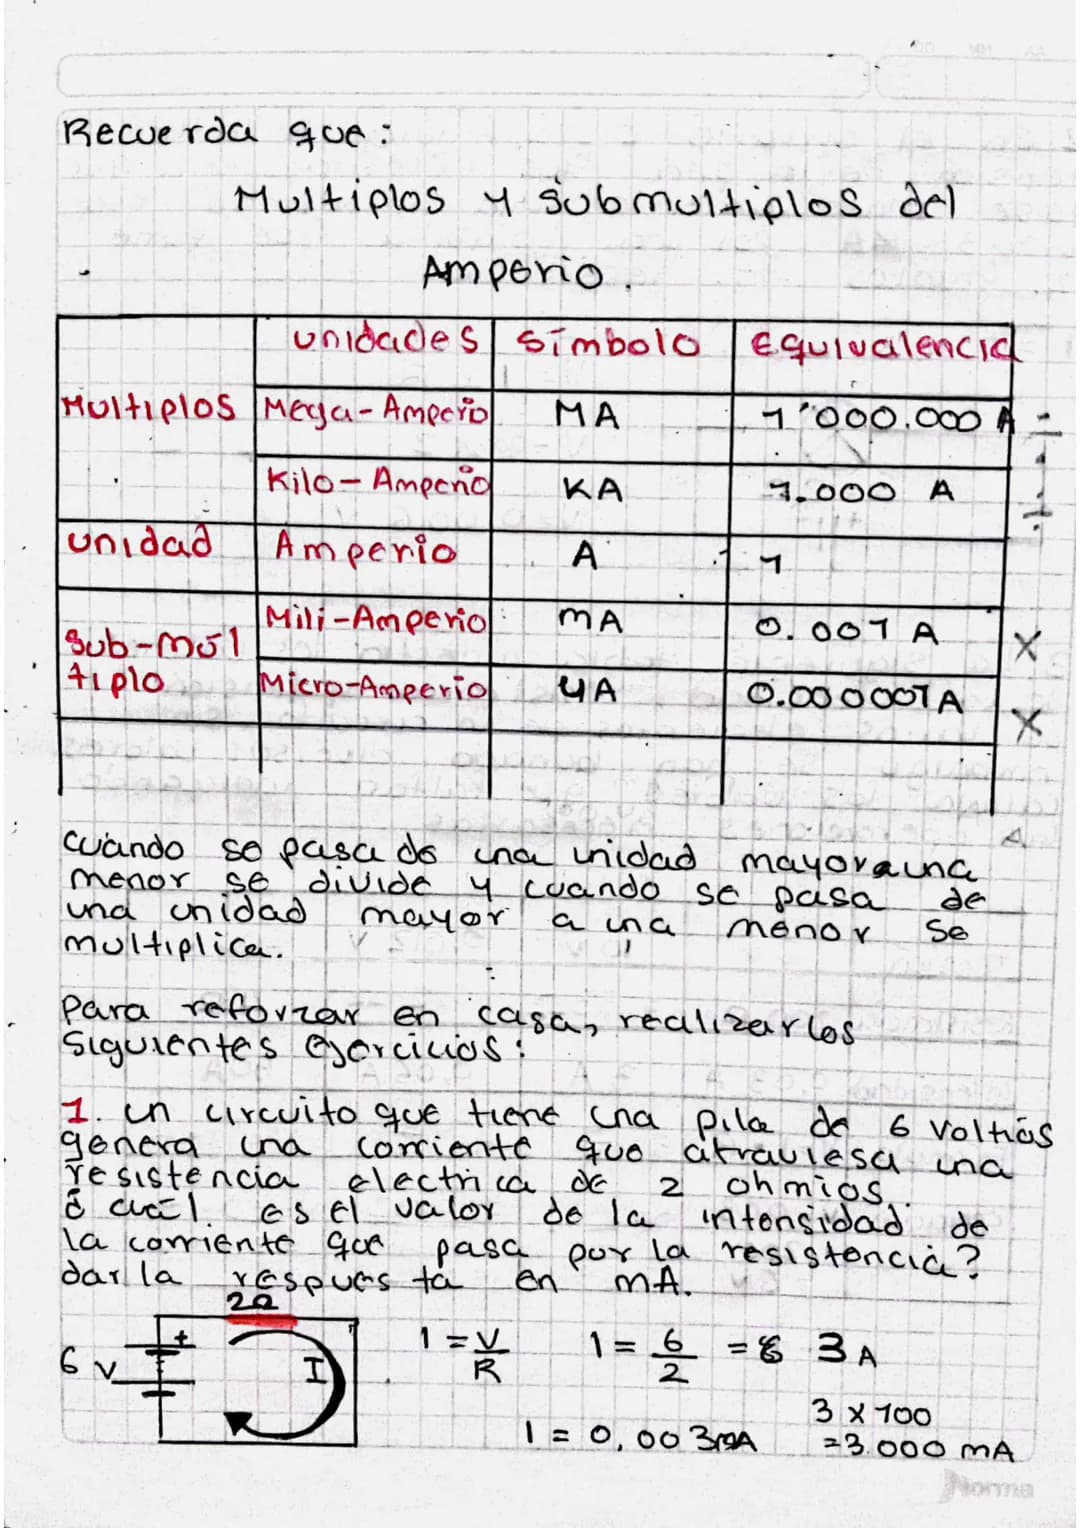 Recuerda que:
Multiplos y submultiplos del
Amperio.
unidades símbolo Equivalencia
Multiplos Mega-Amperio MA 1'000.000 A
Kilo-Amperio KA 1.000 A
unidad Amperio A 1
Mili-Amperio mA 0.001 A X
Sub-múl
tiplo Micro-Amperio UA 0.000001 A X
cuando se pasa de una unidad mayor a una
menor se divide y cuando se pasa de
una unidad mayor a una menor se
multiplica.
para reforzar en casa, realizar los
siguientes ejercicios:
1. un circuito que tiene una pila de 6 voltios
genera una corriente que atraviesa una
resistencia electrica de 2 ohmios.
¿ cuál es el valor de la intensidad de
la corriente que pasa por la resistencia?
dar la respuesta en mA.
2Ω
+
6 V I
I = V/R I = 6/2 = 3 A
3 x 100
I = 0,003mA =3.000 mA
Norma